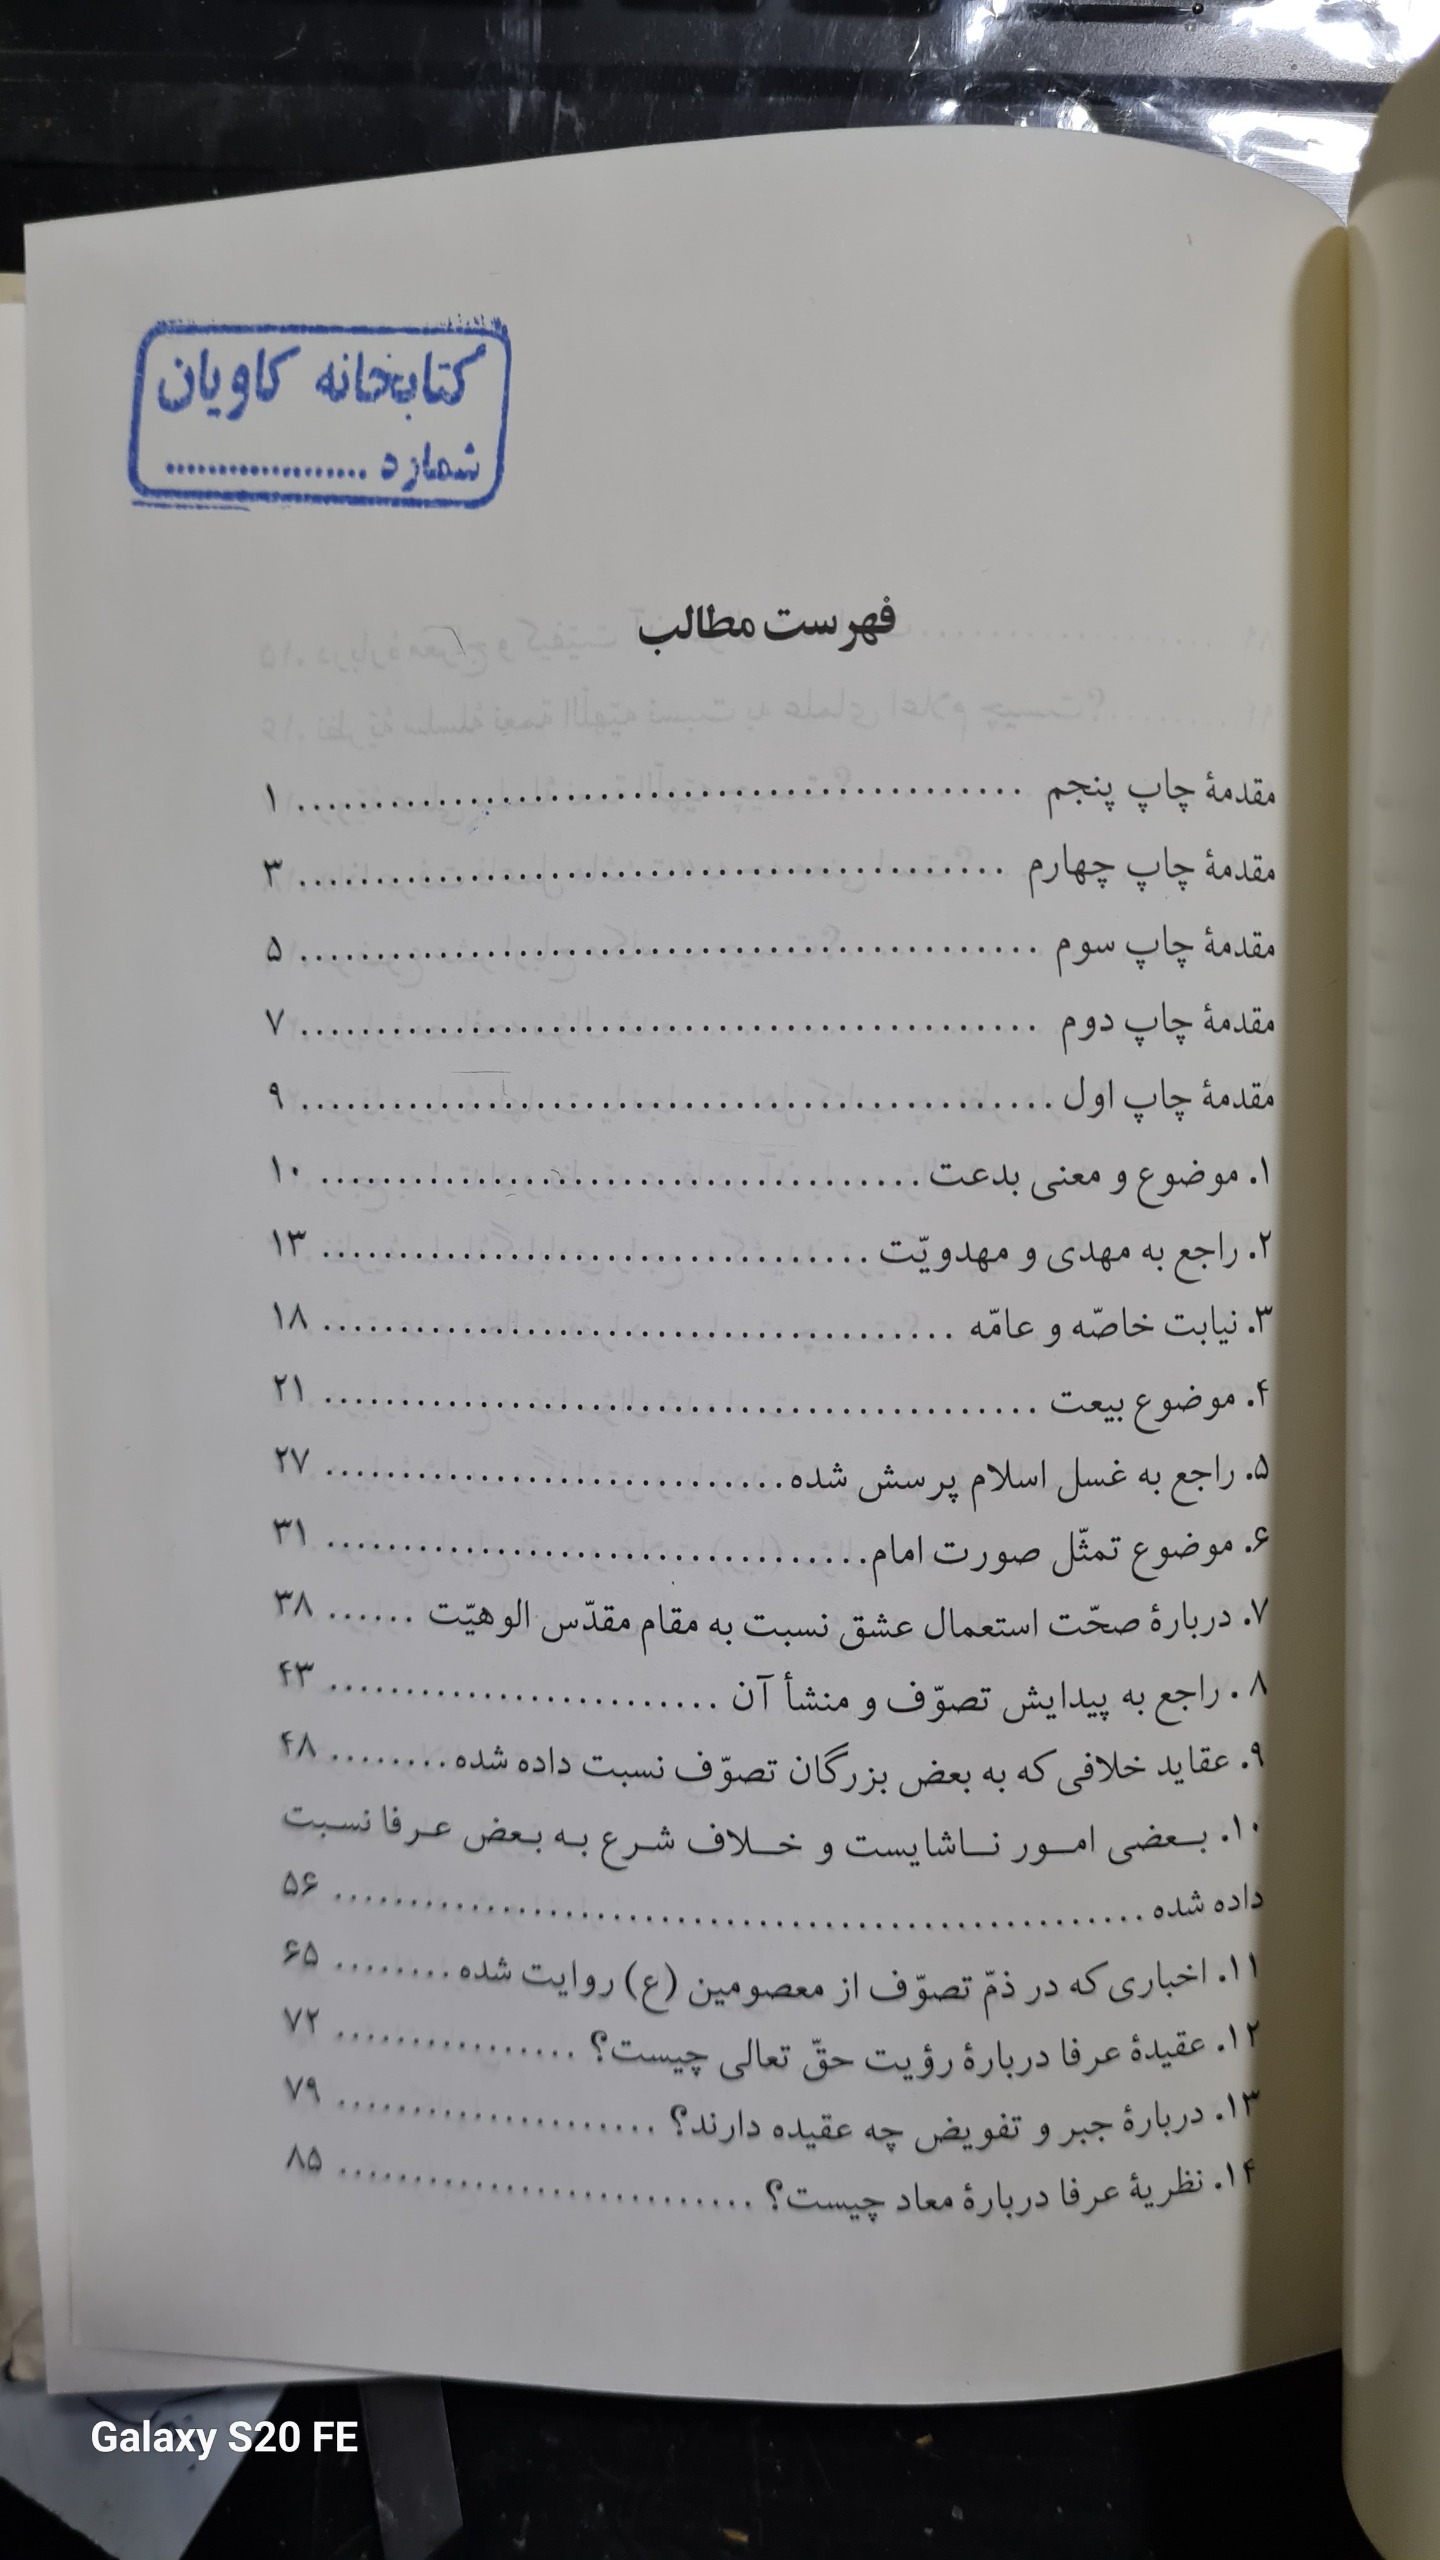 کتابخانه کاویان
شماره ....................
فهرست مطالب
مقدمهٔ چاپ پنجم ................................................ ۱
مقدمهٔ چاپ چهارم ............................................... ۳
مقدمهٔ چاپ سوم ................................................. ۵
مقدمهٔ چاپ دوم ................................................. ۷
مقدمهٔ چاپ اول ................................................. ۹
۱. موضوع و معنی بدعت ........................................ ۱۰
۲. راجع به مهدی و مهدویّت .................................... ۱۳
۳. نیابت خاصّه و عامّه .......................................... ۱۸
۴. موضوع بیعت ............................................... ۲۱
۵. راجع به غسل اسلام پرسش شده .............................. ۲۷
۶. موضوع تمثّل صورت امام .................................... ۳۱
۷. دربارهٔ صحّت استعمال عشق نسبت به مقام مقدّس الوهیّت ...... ۳۸
۸. راجع به پیدایش تصوّف و منشأ آن .......................... ۴۳
۹. عقاید خلافی که به بعض بزرگان تصوّف نسبت داده شده ........ ۴۸
۱۰. بـعضی امـور نـاشایست و خـلاف شـرع بـه بـعض عـرفا نسـبت
داده شده ..................................................... ۵۶
۱۱. اخباری که در ذمّ تصوّف از معصومین (ع) روایت شده ........ ۶۵
۱۲. عقیدهٔ عرفا دربارهٔ رؤیت حقّ تعالی چیست؟ ................ ۷۲
۱۳. دربارهٔ جبر و تفویض چه عقیده دارند؟ ..................... ۷۹
۱۴. نظریهٔ عرفا دربارهٔ معاد چیست؟ ........................... ۸۵
Galaxy S20 FE